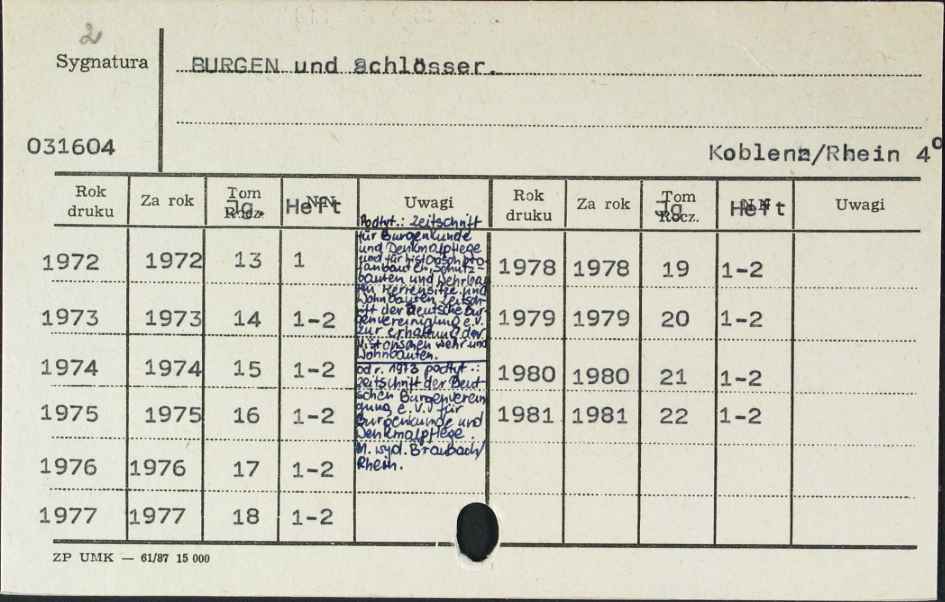 2
Sygnatura
BURGEN und Schlösser.
031604
Koblenz/Rhein 4°
Rok druku Za rok Tom Rocz. Jg. NN Heft Uwagi Rok druku Za rok Tom Rocz. Jg NN Heft Uwagi
1972 1972 13 1 1978 1978 19 1-2
1973 1973 14 1-2 1979 1979 20 1-2
1974 1974 15 1-2 1980 1980 21 1-2
1975 1975 16 1-2 1981 1981 22 1-2
1976 1976 17 1-2
1977 1977 18 1-2
Podtyt.: Zeitschrift
für Burgenkunde
und Denkmalpflege
und für historisch pro
fanbauten, Schutz-
bauten und Wehrbau
Herrensitze und
Wohnbauten, Zeitschr
ift der Deutsche Bur
genvereinigung e.V.
zur erhaltung der
historischen Wehr und
Wohnbauten.
od r. 1973 podtyt.:
Zeitschrift der Deut
schen Burgenverein
gung e.V. für
Burgenkunde und
Denkmalpflege.
M. wyd. Braubach/
Rhein.
ZP UMK — 61/87 15 000